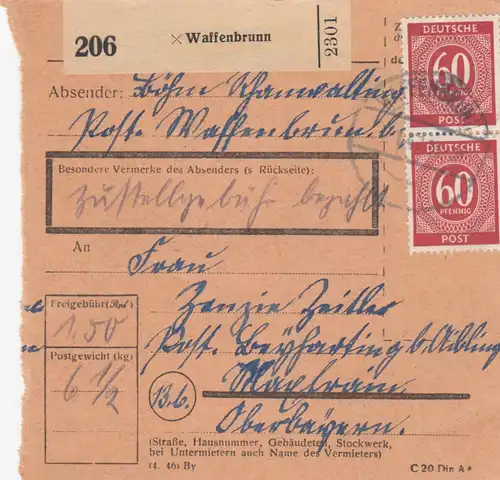 206
× Waffenbrunn
2301
DEUTSCHE
60
PFENNIG
POST
DEUTSCHE
60
PFENNIG
POST
Absender: Böhm
Post. Waffenbrunn b.
Besondere Vermerke des Absenders (s Rückseite):
Zustellgebühr bezahlt
An
Frau
Zenzie Zeitler
Post. Beyharting b. Aibling
Maxlrain.
Oberbayern.
Freigebühr (Rpf)
1.50
Postgewicht (kg)
6 1/2
13b.
(Straße, Hausnummer, Gebäudeteil, Stockwerk,
bei Untermietern auch Name des Vermieters)
(4. 46) By
C 20 Din A